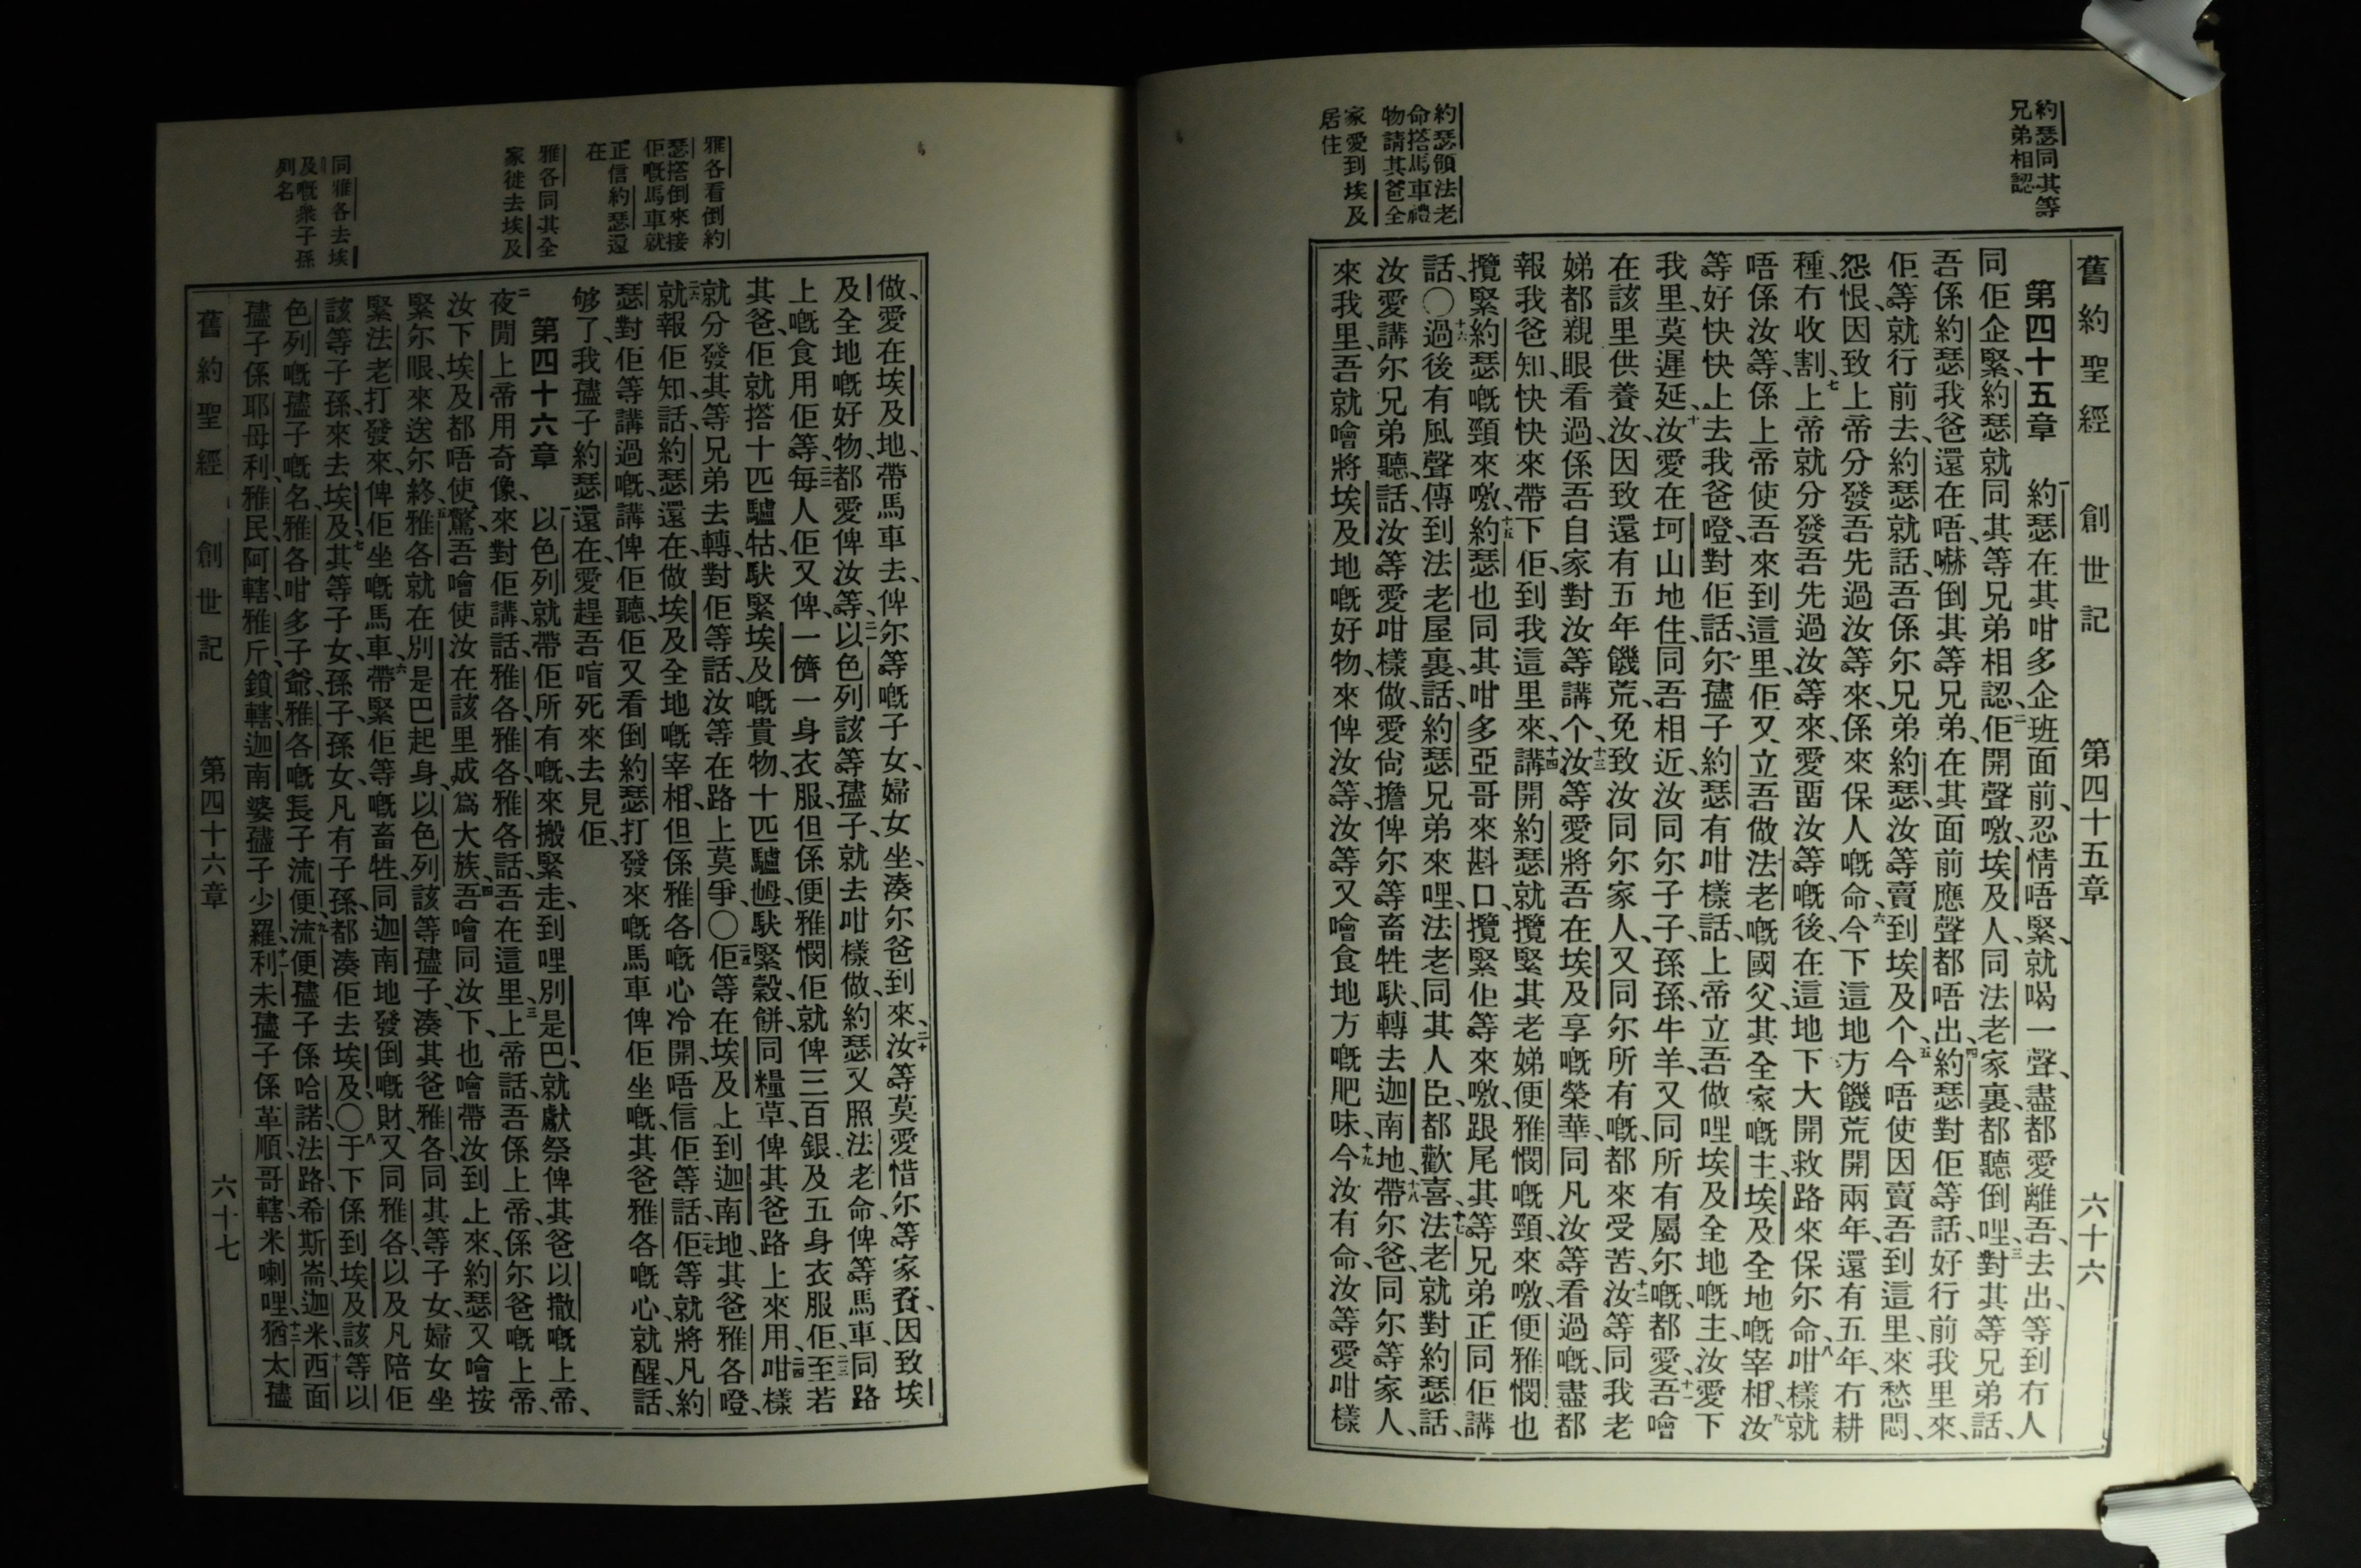 約瑟同其等
兄弟相認
約瑟領法老
命撘馬車禮
物請其爸全
家愛到埃及
居住
舊約聖經　創世記　第四十五章　六十六
第四十五章　一約瑟在其咁多企班面前、忍情唔緊、就喝一聲、盡都愛離吾、去出、等到冇人
同佢企緊、約瑟就同其等兄弟相認、二佢開聲噭、埃及人、同法老家裏、都聽倒哩、三對其等兄弟話、
吾係約瑟、我爸還在唔、嚇倒其等兄弟、在其面前應聲都唔出、四約瑟對佢等話、好行前我里來、
佢等就行前去、約瑟就話、吾係尔兄弟約瑟、汝等賣到埃及个、五今唔使因賣吾到這里、來愁悶、
怨恨、因致上帝分發吾先過汝等來、係來保人嘅命、六今下這地方饑荒開兩年、還有五年、冇耕
種、冇收割、七上帝就分發吾先過汝等來、愛畱汝等嘅後、在這地下大開救路、來保尔命、八咁樣就
唔係汝等、係上帝使吾來到這里、佢又立吾做法老嘅國父、其全家嘅主、埃及全地嘅宰相、九汝
等好快快上去我爸嶝、對佢話、尔孻子約瑟有咁樣話、上帝立吾做哩埃及全地嘅主、汝愛下
我里、莫遲延、十汝愛在坷山地住、同吾相近、汝同尔子子、孫孫、牛羊、又同所有屬尔嘅、都愛、十一吾噲
在該里供養汝、因致還有五年饑荒、免致汝同尔家人、又同尔所有嘅、都來受苦、十二汝等同我老
娣都親眼看過、係吾自家對汝等講个、十三汝等愛將吾在埃及享嘅榮華、同凡汝等看過嘅、盡都
報我爸知、快快來帶下佢、到我這里來、十四講開約瑟就攬緊其老娣便雅憫嘅頸、來噭、便雅憫也
攬緊約瑟嘅頸來噭、十五約瑟也同其咁多亞哥來斟口、攬緊佢等來噭、跟尾其等兄弟正同佢講
話、〇十六過後有風聲傳到法老屋裏、話、約瑟兄弟來哩、法老同其人臣、都歡喜、十七法老就對約瑟話、
汝愛講尔兄弟聽、話汝等愛咁樣做、愛尙擔俾尔等畜牲馱、轉去迦南地、十八帶尔爸、同尔等家人、
來我里、吾就噲將埃及地嘅好物、來俾汝等、汝等又噲食地方嘅肥味、十九今汝有命、汝等愛咁樣
雅各看倒約
瑟撘倒來接
佢嘅馬車就
正信約瑟還
在
雅各同其全
家徙去埃及
同雅各去埃
及嘅衆子孫
列名
做、愛在埃及地、帶馬車去、俾尔等嘅子女、婦女坐、湊尔爸到來、二十汝等莫愛惜尔等家賚、因致埃
及全地嘅好物、都愛俾汝等、二一以色列該等孻子、就去咁樣做、約瑟又照法老命、俾等馬車、同路
上嘅食用佢等、二二每人佢又俾、一儕一身衣服、但係便雅憫、佢就俾三百銀及五身衣服佢、二三至若
其爸、佢就撘十匹驢牯、馱緊埃及嘅貴物、十匹驢𡜵馱緊穀、餅、同糧草、俾其爸路上來用、二四咁樣
就分發其等兄弟去轉、對佢等話、汝等在路上莫爭、〇二五佢等在埃及上到迦南地、其爸雅各嶝、
二六就報佢知、話、約瑟還在、做埃及全地嘅宰相、但係雅各嘅心冷開、唔信佢等話、二七佢等就將凡約
瑟對佢等講過嘅、講俾佢聽、佢又看倒約瑟打發來嘅馬車俾佢坐嘅、其爸雅各嘅心、就醒、話、
够了、我孻子約瑟還在、愛趕吾喑死來去見佢、
第四十六章　一以色列就帶佢所有嘅、來搬緊走、到哩別是巴、就獻祭俾其爸以撒嘅上帝、
二夜間上帝用奇像、來對佢講、話、雅各、雅各、雅各話、吾在這里、三上帝話、吾係上帝、係尔爸嘅上帝、
汝下埃及都唔使驚、吾噲使汝在該里成爲大族、四吾噲同汝下、也噲帶汝到上來、約瑟又噲按
緊尔眼、來送尔終、五雅各就在別是巴起身、以色列該等孻子、湊其爸雅各、同其等子女、婦女坐
緊法老打發來、俾佢坐嘅馬車、六帶緊佢等嘅畜牲、同迦南地發倒嘅財、又同雅各、以及凡陪佢
該等子孫、來去埃及、七其等子女、孫子、孫女、凡有子孫、都湊佢去埃及、〇八于下係到埃及該等以
色列嘅孻子嘅名、雅各咁多子爺、雅各嘅長子流便、九流便孻子係哈諾、法路、希斯崙、迦米、十西面
孻子係耶母利、雅民、阿轄、雅斤、鎖轄、迦南婆孻子少羅、十一利未孻子係革順、哥轄、米喇哩、十二猶太孻
舊約聖經　創世記　第四十六章　六十七